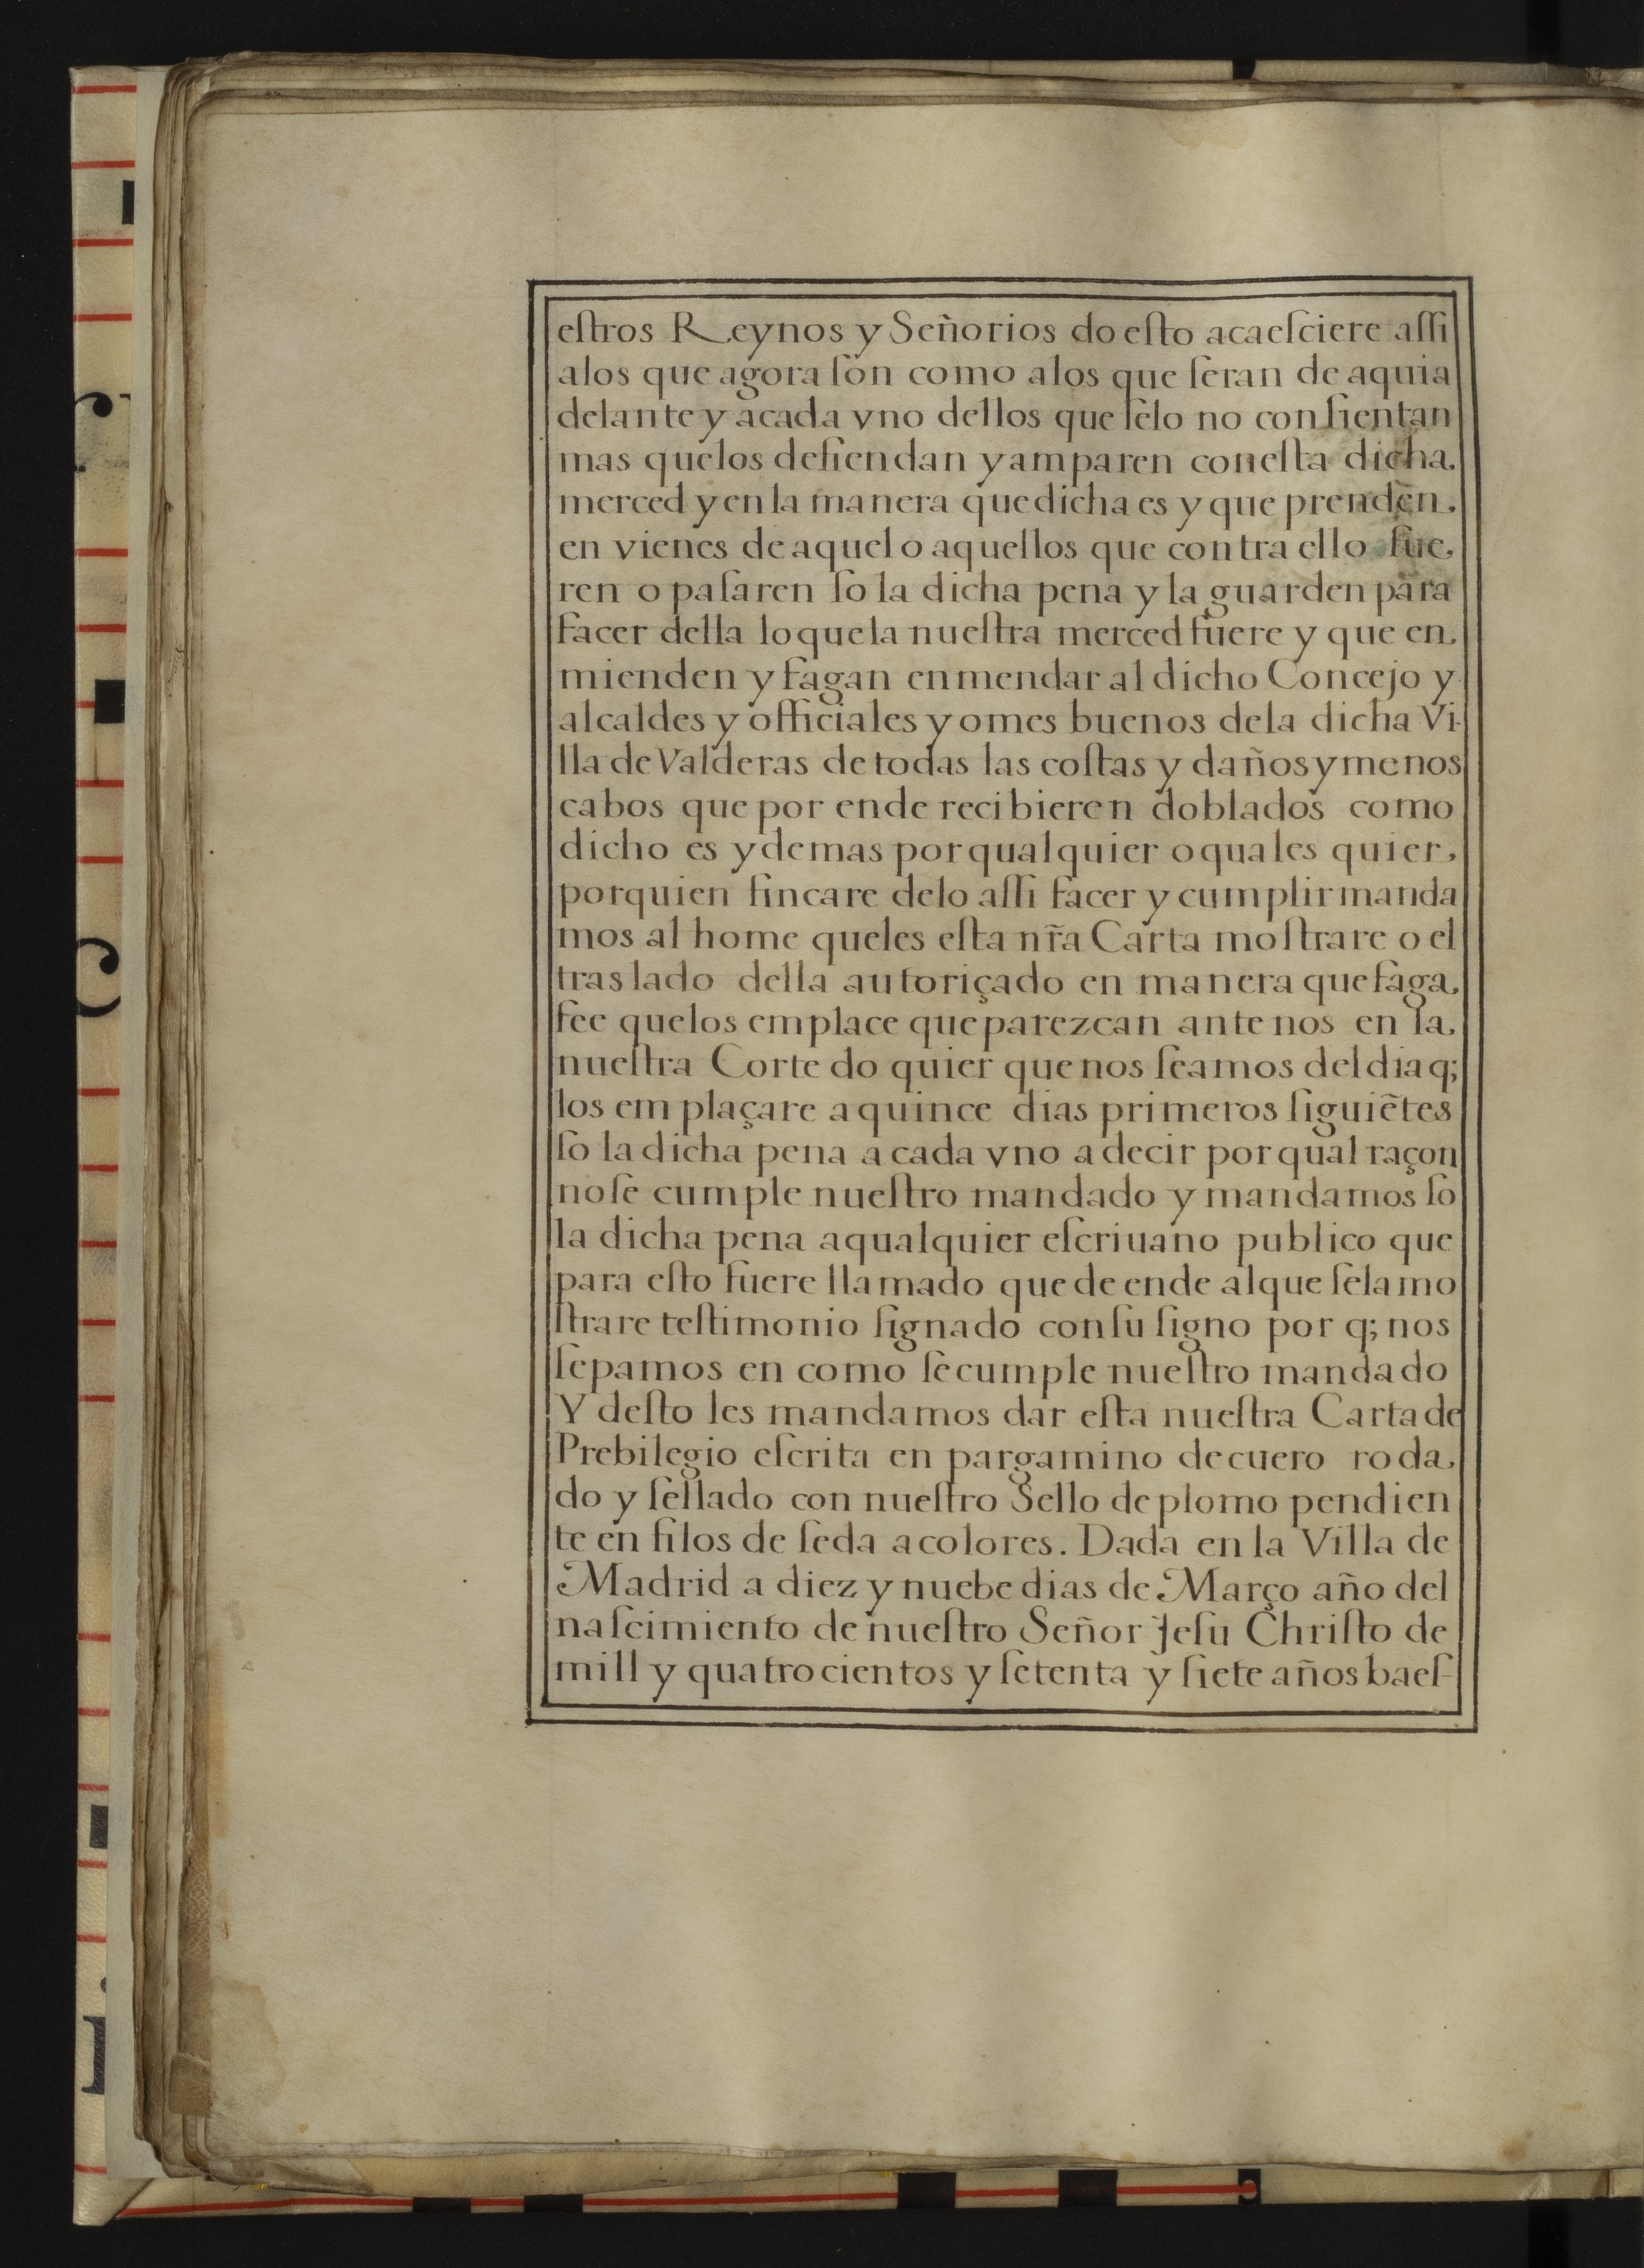 eſtros Reynos y Señorios do eſto acaeſciere aſſi
alos que agora ſon como alos que ſeran de aquia
delante y acada vno dellos que ſelo no conſientan
mas quelos defiendan y amparen coneſta dicha,
merced y en la manera que dicha es y que prenden,
en vienes de aquel o aquellos que contra ello fue,
ren o paſaren ſo la dicha pena y la guarden para
facer della lo que la nueſtra merced fuere y que en,
mienden y fagan enmendar al dicho Concejo y
alcaldes y officiales y omes buenos dela dicha Vi-
lla de Valderas de todas las coſtas y daños y menos
cabos que por ende recibieren doblados como
dicho es y demas por qualquier o quales quier,
por quien fincare delo aſſi facer y cumplir manda
mos al home queles eſta nr̃a Carta moſtrare o el
traslado della autoriçado en manera que faga,
fee quelos emplace que parezcan ante nos en la,
nueſtra Corte do quier que nos ſeamos del dia q;
los emplaçare a quince dias primeros ſiguiẽtes
ſo la dicha pena a cada vno a decir por qual raçon
noſe cumple nueſtro mandado y mandamos ſo
la dicha pena aqualquier eſcriuano publico que
para eſto fuere llamado que de ende alque ſela mo
ſtrare teſtimonio ſignado conſu ſigno por q; nos
ſepamos en como ſe cumple nueſtro mandado
Y deſto les mandamos dar eſta nueſtra Carta de
Prebilegio eſcrita en pargamino de cuero roda,
do y ſellado con nueſtro Sello de plomo pendien
te en filos de ſeda a colores. Dada en la Villa de
Madrid a diez y nuebe dias de Março año del
naſcimiento de nueſtro Señor Jeſu Chriſto de
mill y quatrocientos y ſetenta y ſiete años baeſ-